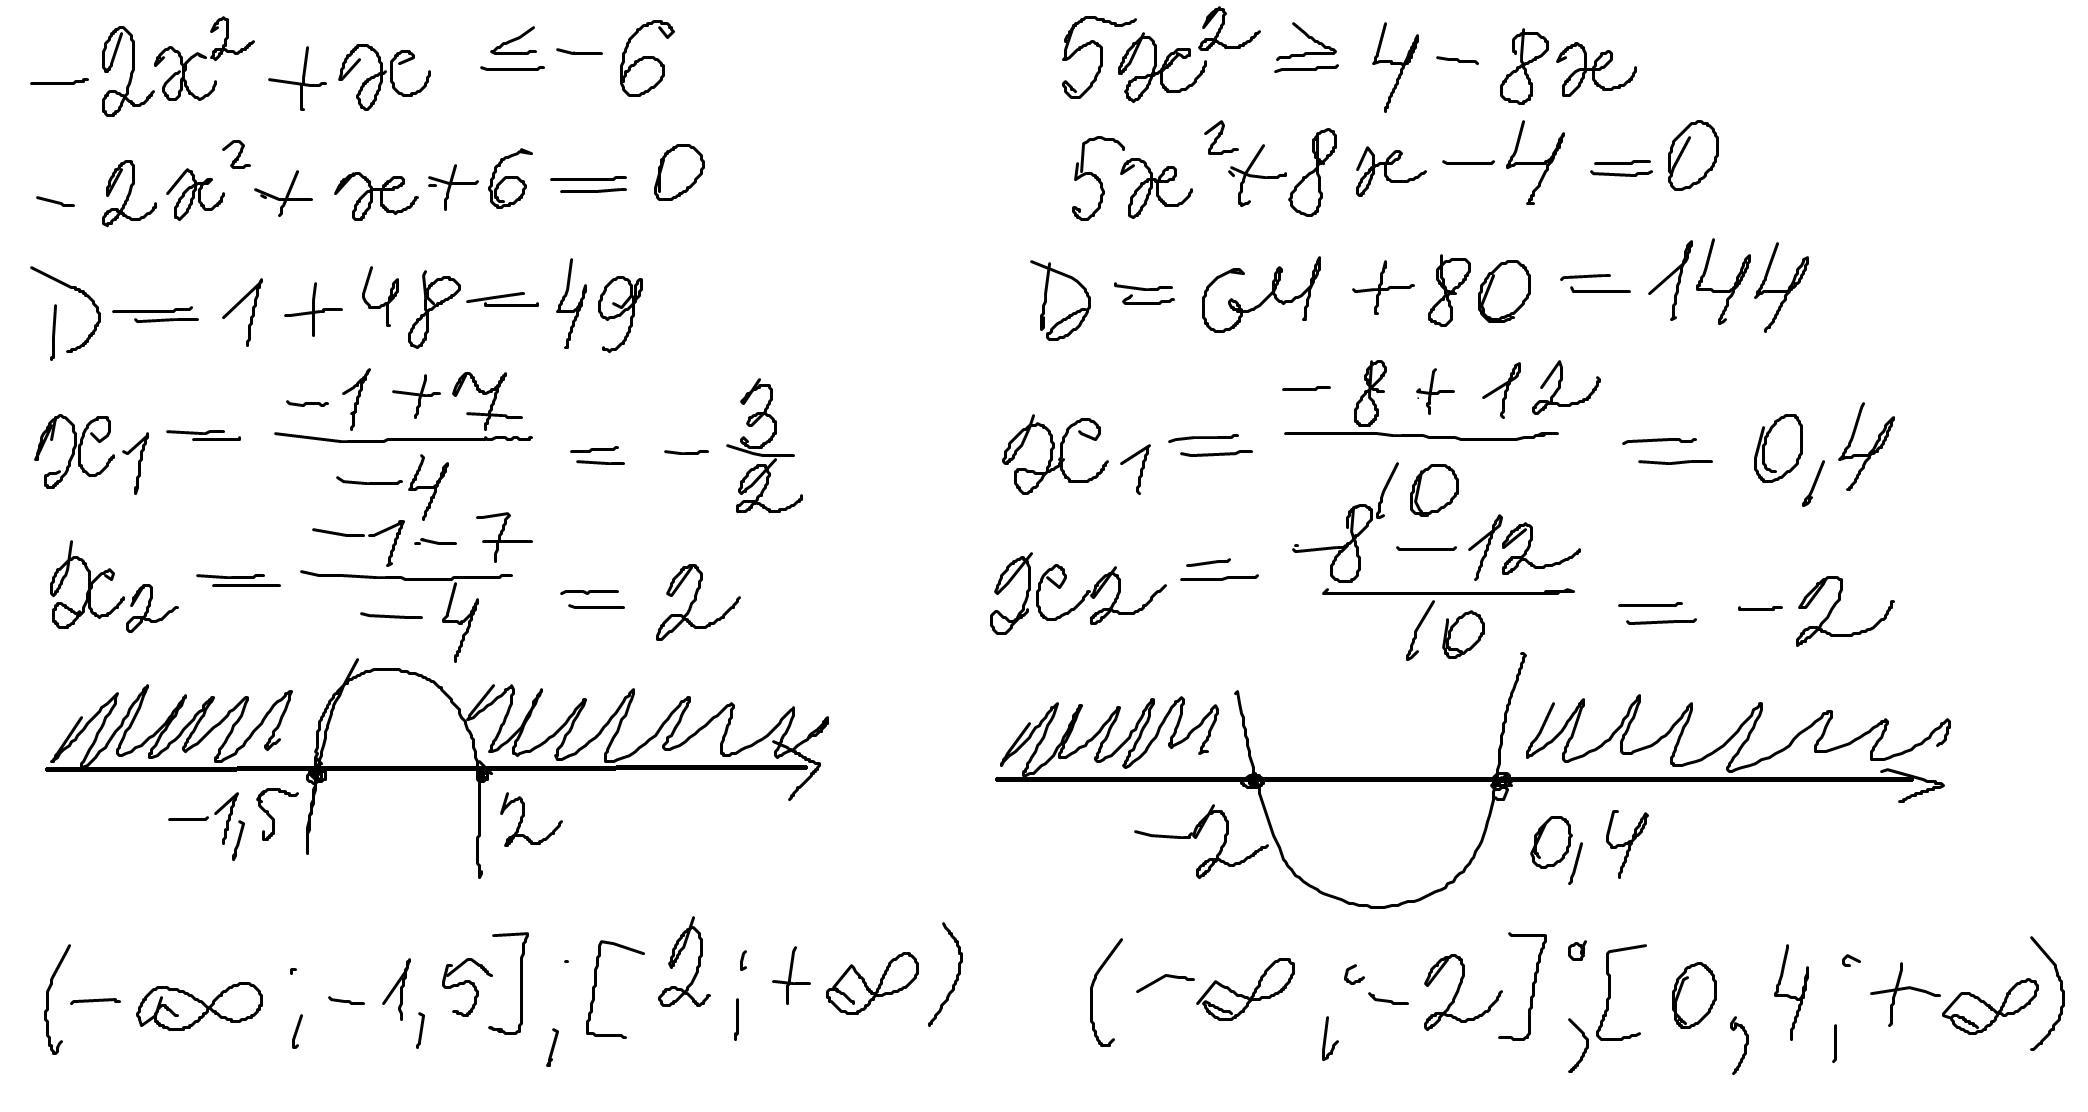 -2x² + x ≤ -6
-2x² + x + 6 = 0
D = 1 + 48 = 49
x₁ = (-1 + 7)/(-4) = -3/2
x₂ = (-1 - 7)/(-4) = 2
-1,5 2
(-∞; -1,5]; [2; +∞)
5x² ≥ 4 - 8x
5x² + 8x - 4 = 0
D = 64 + 80 = 144
x₁ = (-8 + 12)/10 = 0,4
x₂ = (-8 - 12)/10 = -2
-2 0,4
(-∞; -2]; [0,4; +∞)